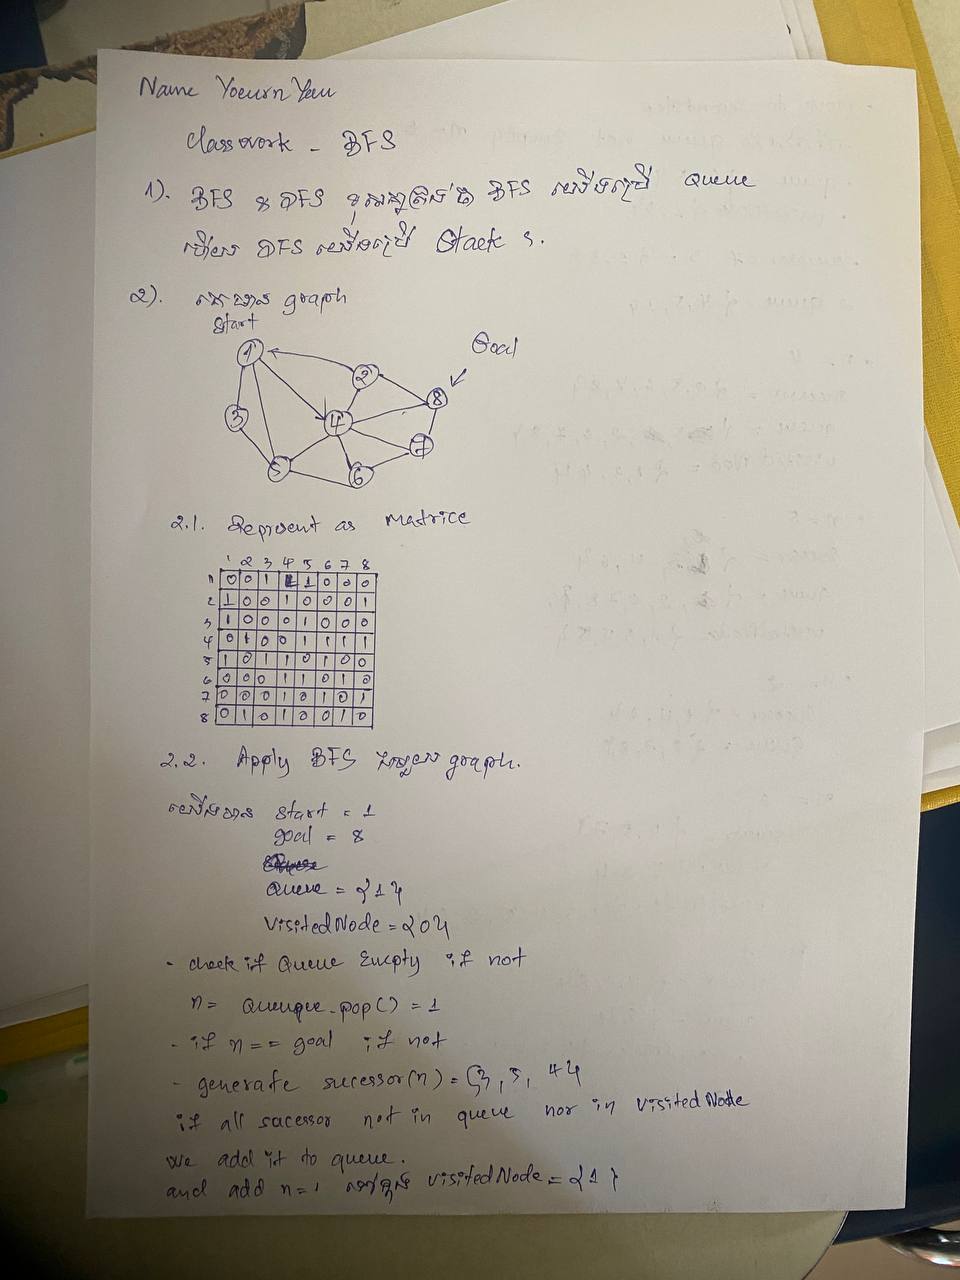 Name Yoeurn Yau
Classwork - BFS
1). BFS & DFS ខុសគ្នាត្រង់ថា BFS យើងប្រើ Queue
ហើយ DFS យើងប្រើ Stack ។
2). គេមាន graph
Start
Goal
1
2
3
4
8
7
5
6
2.1. Represent as Matrice
1 2 3 4 5 6 7 8
1 0 0 1 1 1 0 0 0
2 1 0 0 1 0 0 0 1
3 1 0 0 0 1 0 0 0
4 0 1 0 0 1 1 1 1
5 1 0 1 1 0 1 0 0
6 0 0 0 1 1 0 1 0
7 0 0 0 1 0 1 0 1
8 0 1 0 1 0 0 1 0
2.2. Apply BFS graph.
យើងមាន Start = 1
goal = 8
Queue = {1}
VisitedNode = {0}
- check if Queue Empty if not
n = Queuqee.pop() = 1
- if n == goal if not
- generate sucessor(n) = {3, 5, 4}
if all sacessor not in queue nor in VisitedNode
we add it to queue.
and add n=1 ទៅក្នុង VisitedNode = {1}